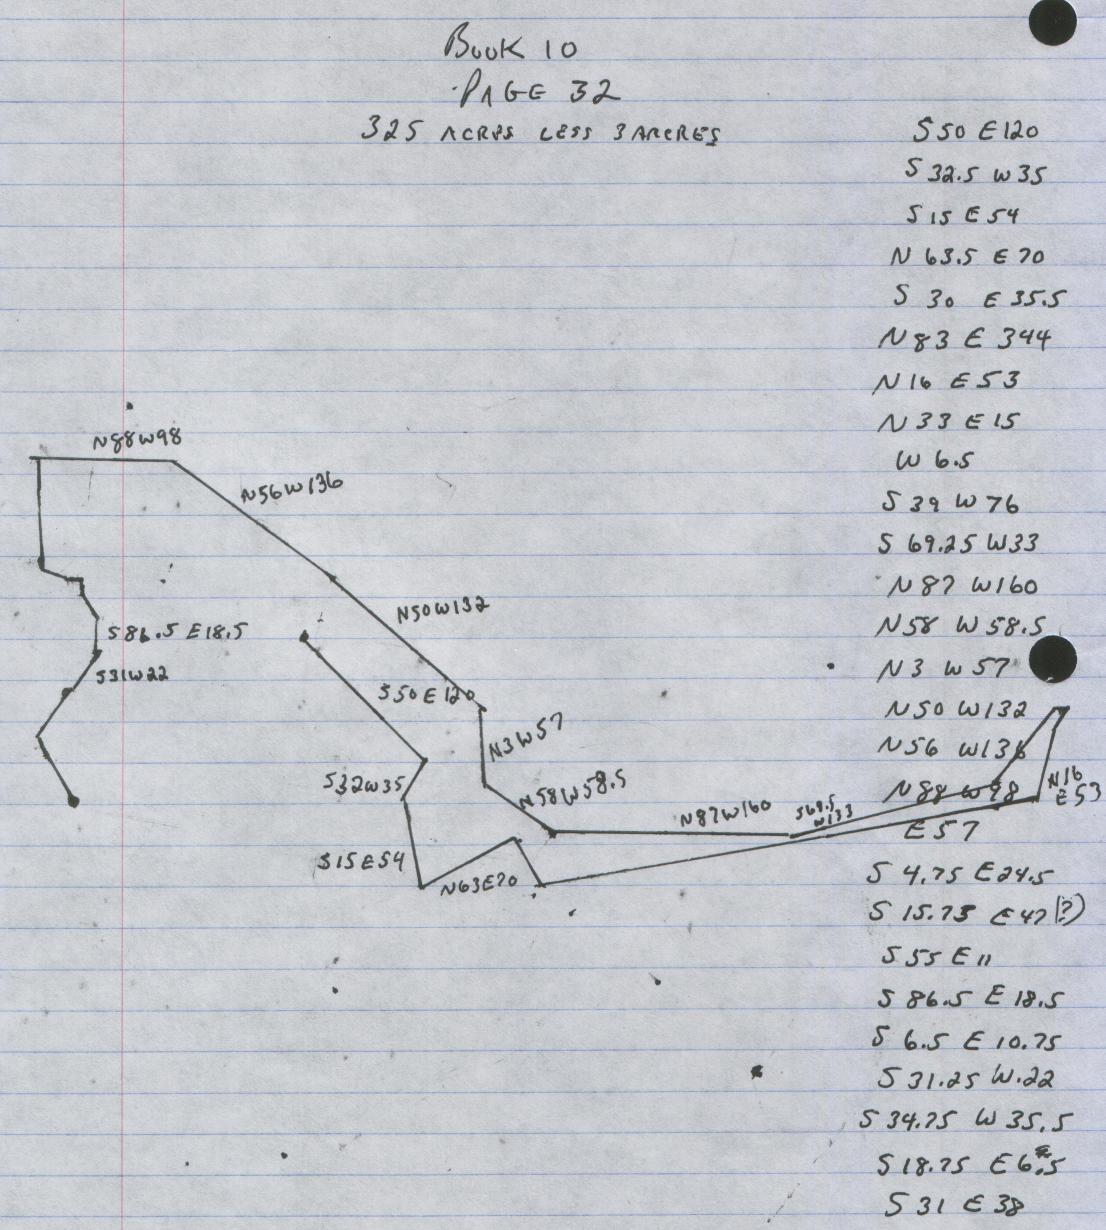 BOOK 10
PAGE 32
325 ACRES LESS 3 ARCRES
S50 E120
S 32.5 W35
S 15 E 54
N 63.5 E 70
S 30 E 35.5
N 83 E 344
N 16 E 53
N 33 E 15
W 6.5
S 39 W 76
S 69.25 W33
N 87 W160
N58 W 58.5
N 3 W 57
N50 W132
N56 W136
N88 W98
E 57
S 4.75 E24.5
S 15.75 E47(?)
S 55 E 11
S 86.5 E 18.5
S 6.5 E 10.75
S 31.25 W.22
S 34.75 W 35.5
S 18.75 E6.5
S 31 E 38
N88W98
N56W136
N50W132
S86.5 E18.5
S31W22
S50E120
N3W57
S32W35
N58W58.5
N87W160
S69.5
W133
N16
E53
S15E54
N63E70